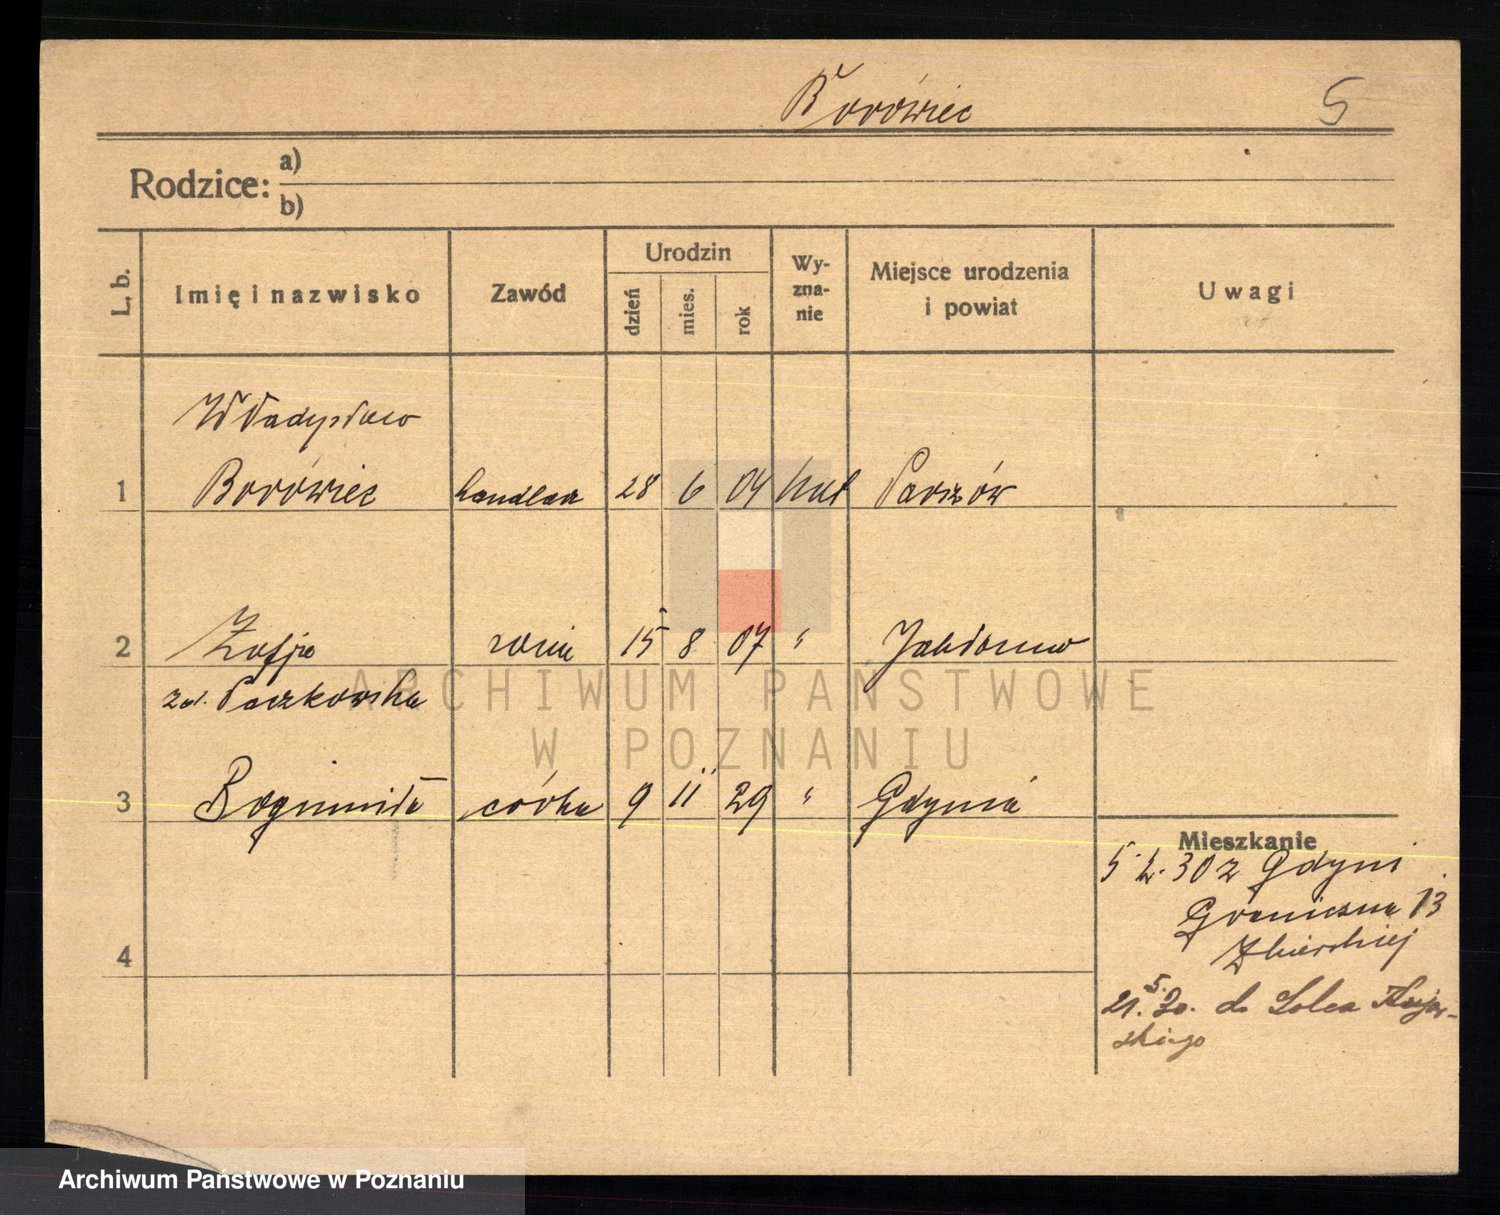 Borówiec 5
Rodzice: a)
b)
L. b. Imię i nazwisko Zawód Urodzin dzień mies. rok Wy-zna-nie Miejsce urodzenia i powiat Uwagi
Władysław
1 Borówiec handlarz 28 6 04 kat Parzów
2 Zofja żona 15 8 07 " Jabłonowo
zd. Paczkowska
ARCHIWUM PAŃSTWOWE
W POZNANIU
3 Bogumiła córka 9 11 29 " Gdynia
Mieszkanie
5.2.30 z Gdyni
Graniczna 13
4
21.5.30. do Solca Kujaw-
skiego
Archiwum Państwowe w Poznaniu